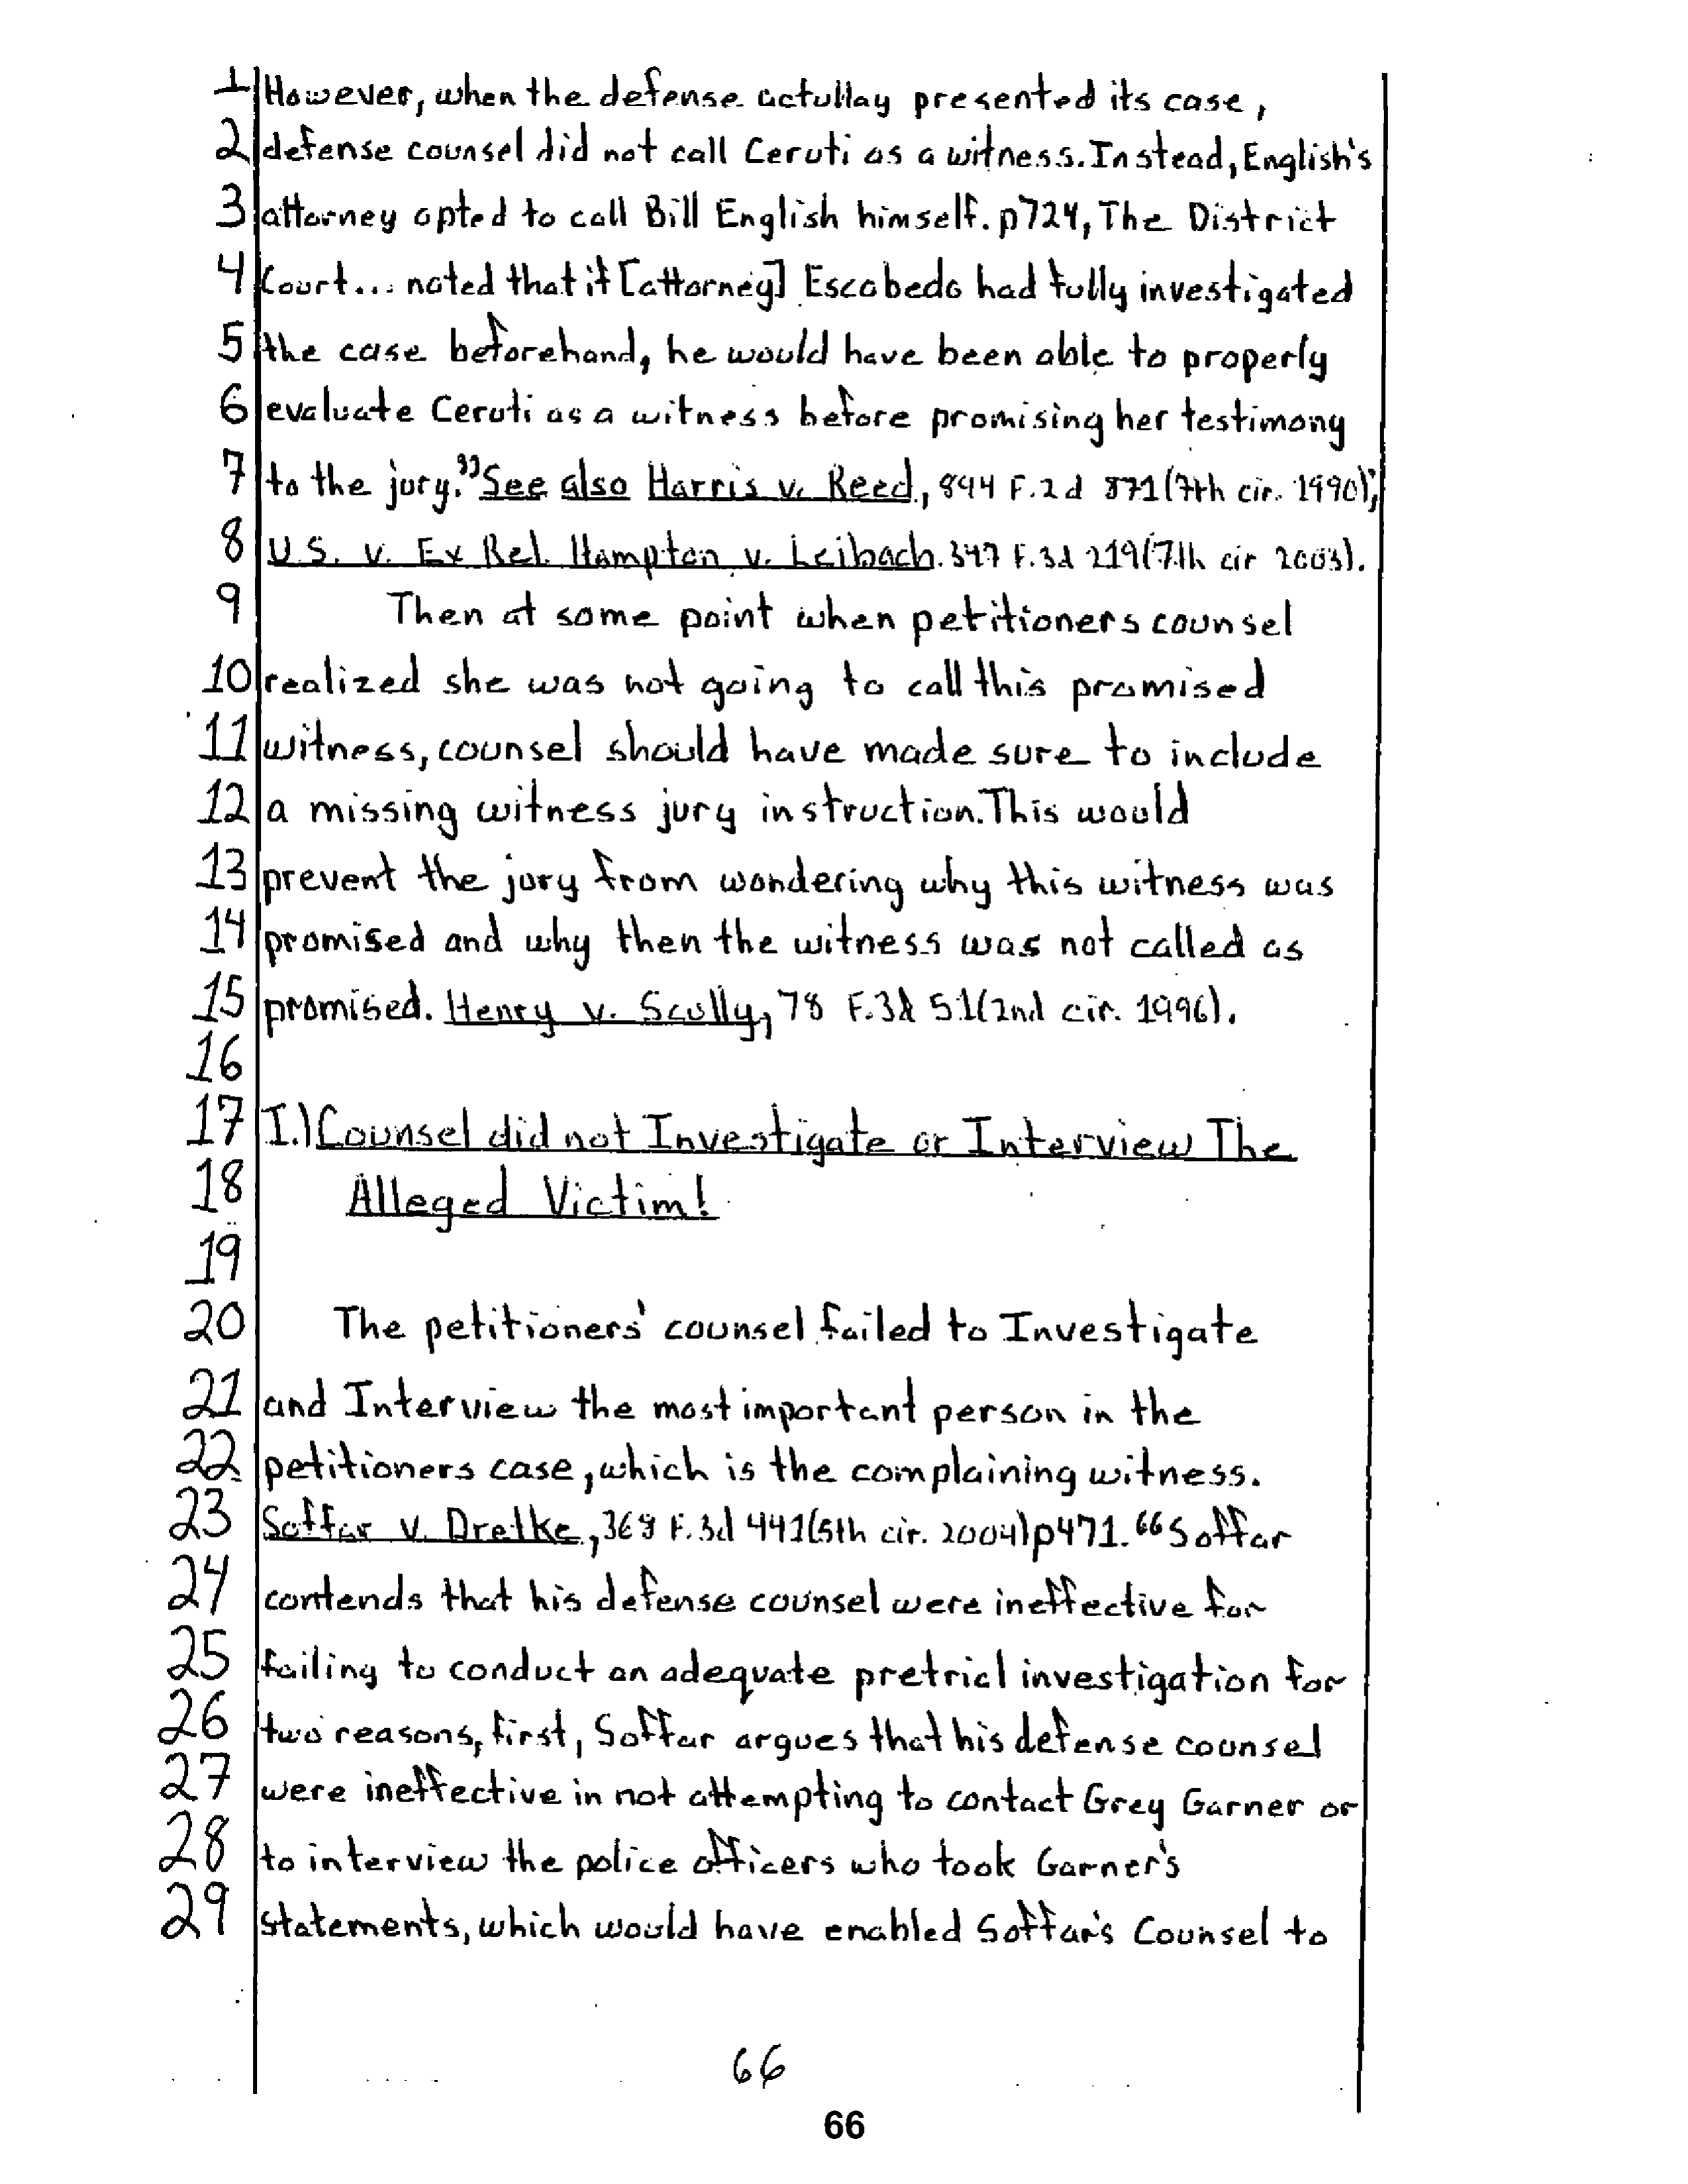 1 However, when the defense actullay presented its case,
2 defense counsel did not call Ceruti as a witness. Instead, English's
3 attorney opted to call Bill English himself. p724, The District
4 Court... noted that if [attorney] Escobedo had fully investigated
5 the case beforehand, he would have been able to properly
6 evaluate Ceruti as a witness before promising her testimony
7 to the jury." See also Harris v. Reed, 894 F.2d 871 (7th cir. 1990);
8 U.S. v. Ex Rel. Hampton v. Leibach. 347 F.3d 219 (7th cir 2003).
9 Then at some point when petitioners counsel
10 realized she was not going to call this promised
11 witness, counsel should have made sure to include
12 a missing witness jury instruction. This would
13 prevent the jury from wondering why this witness was
14 promised and why then the witness was not called as
15 promised. Henry v. Scully, 78 F.3d 51 (2nd cir. 1996).
16
17 I.) Counsel did not Investigate or Interview The
18 Alleged Victim!
19
20 The petitioners' counsel failed to Investigate
21 and Interview the most important person in the
22 petitioners case, which is the complaining witness.
23 Soffar v. Dretke, 368 F.3d 441 (5th cir. 2004) p471. "Soffar
24 contends that his defense counsel were ineffective for
25 failing to conduct an adequate pretrial investigation for
26 two reasons, first, Soffar argues that his defense counsel
27 were ineffective in not attempting to contact Greg Garner or
28 to interview the police officers who took Garner's
29 statements, which would have enabled Soffar's Counsel to
66
66